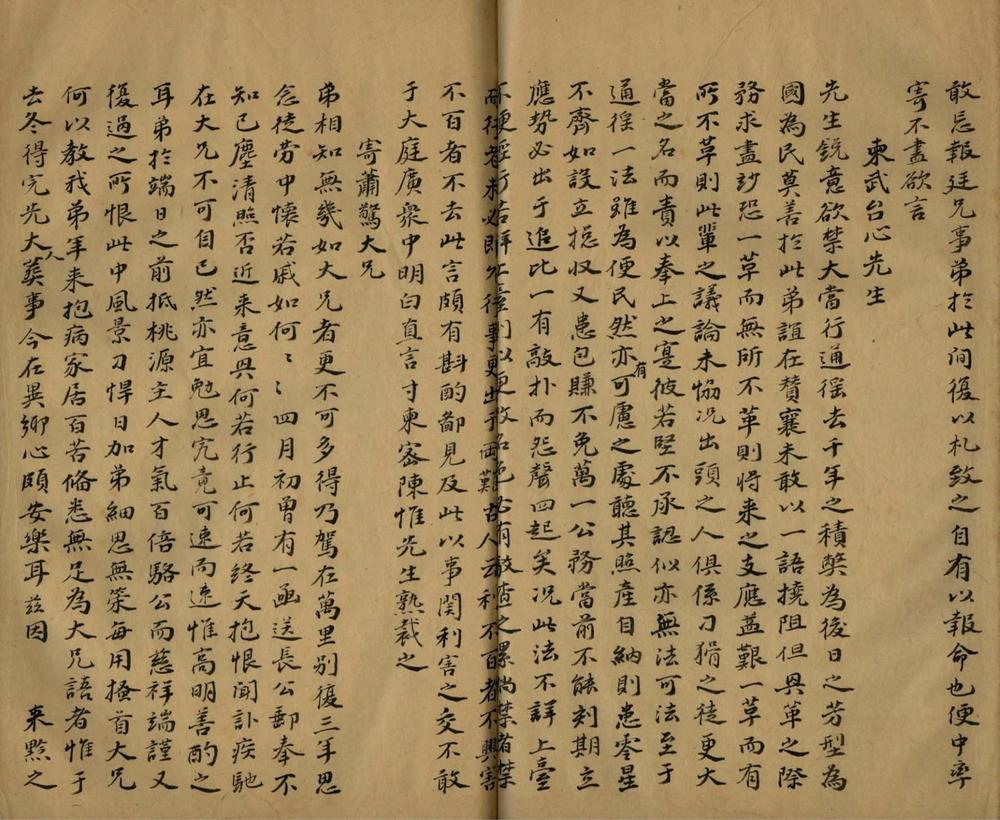 敢忘報廷兄事弟於此间復以札致之自有以報命也便中率
寄不盡欲言
柬武台心先生
先生銳意欲禁大當行通徭去千年之積獘為後日之芳型為
國為民莫善於此弟誼在賛襄未敢以一語撓阻但興革之際
務求盡妙恐一草而無所不革則将来之支應葢艱一草而有
所不草則此輩之議論未恊況出頭之人俱係刁猾之徒更大
當之名而責以奉上之寔彼若堅不承認似亦無法可法至于
通徭一法雖為便民然亦有可慮之處聽其照產自納則患零星
不齊如設立摠収又患包賺不免萬一公務當前不能刻期立
應势必出于追比一有敲扑而怨聲四起矣况此法不詳上臺
不便徑行若詳上臺則以更改名色必有駁查之累倘禁者禁
而徃者未必即允後事更出于両難古人云利不百者不興害
不百者不去此言頗有斟酌鄙見及此以事関利害之交不敢
于大庭廣衆中明白直言寸柬密陳惟先生熟裁之
寄蕭驚大兄
弟相知無幾如大兄者更不可多得乃駕在萬里别復三年思
念徒劳中懷若戚如何〻〻四月初曽有一凾送長公郵奉不
知已塵清照否近来意興何若行止何若終天抱恨聞訃疾馳
在大兄不可自已然亦宜勉思究竟可速而速惟高明善酌之
耳弟於端日之前抵桃源主人才氣百倍駱公而慈祥端謹又
復過之所恨此中風景刁悍日加弟細思無策每用搔首大兄
何以教我弟年来抱病家居百苦俻悉無足為大兄語者惟于
去冬得完先大人葬事今在異鄉心頗安樂耳兹因　来黔之